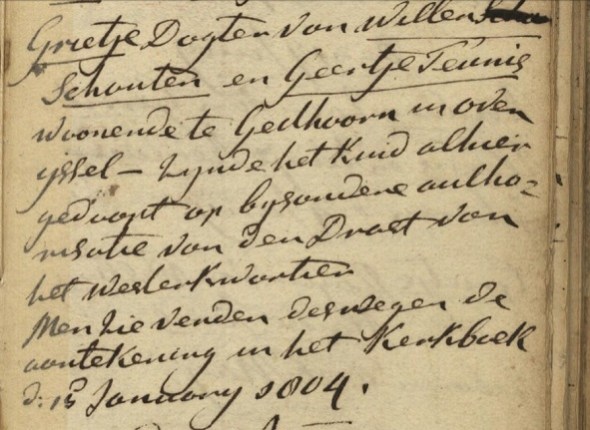 Grietje Dogter van Willem
Schouten en Geertje Teunis
woonende te Giethoorn in over
yssel – zynde het Kind alhier
gedoopt op bysondere autho-
risatie van den Drost van
het Westerkwartier
Men zie verder deswegen de
aantekening in het Kerkboek
d: 15 January 1804.